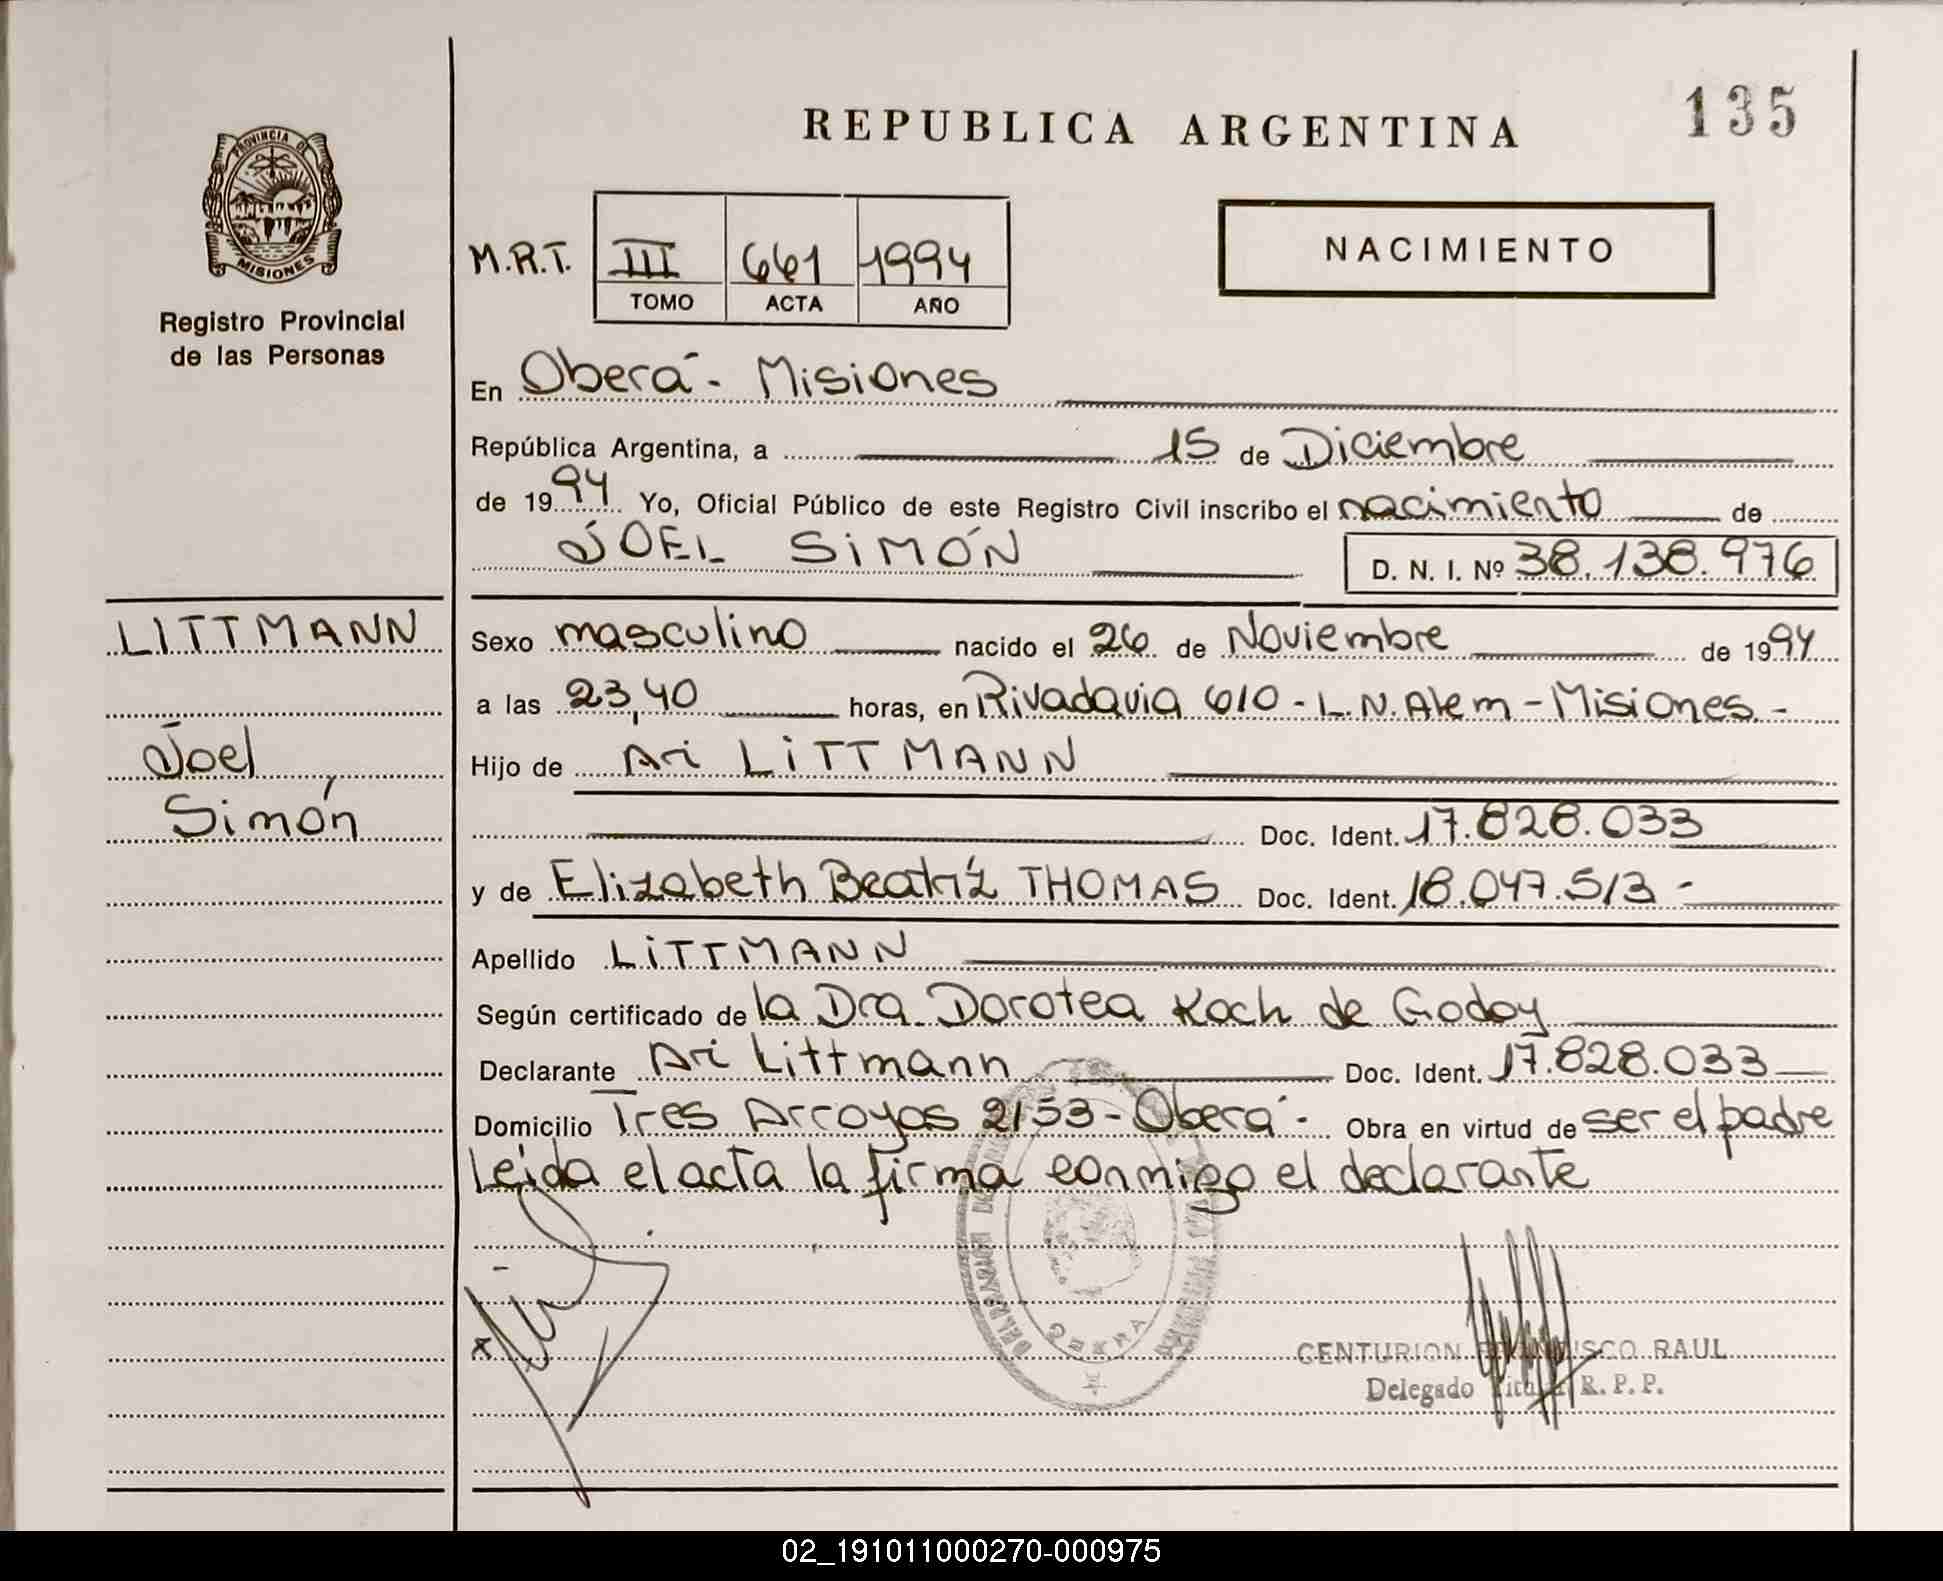 REPUBLICA ARGENTINA
135
PROVINCIA DE
MISIONES
Registro Provincial
de las Personas
NACIMIENTO
M.R.T. III 661 1994
TOMO ACTA AÑO
En Oberá - Misiones
República Argentina, a 15 de Diciembre
de 1994 Yo, Oficial Público de este Registro Civil inscribo el nacimiento de
JOEL SIMÓN D. N. I. Nº 38.138.976
LITTMANN
Joel
Simón
Sexo masculino nacido el 26 de Noviembre de 1994
a las 23,40 horas, en Rivadavia 610 - L.N. Alem - Misiones -
Hijo de Ari LITTMANN
Doc. Ident. 17.828.033
y de Elizabeth Beatríz THOMAS Doc. Ident. 18.047.513 -
Apellido LITTMANN
Según certificado de la Dra. Dorotea Koch de Godoy
Declarante Ari Littmann Doc. Ident. 17.828.033
Domicilio Tres Arroyos 2153 - Oberá - Obra en virtud de ser el padre
Leida el acta la firma conmigo el declarante
OBERA
CENTURION FRANCISCO RAUL
Delegado Titular R. P. P.
02_191011000270-000975